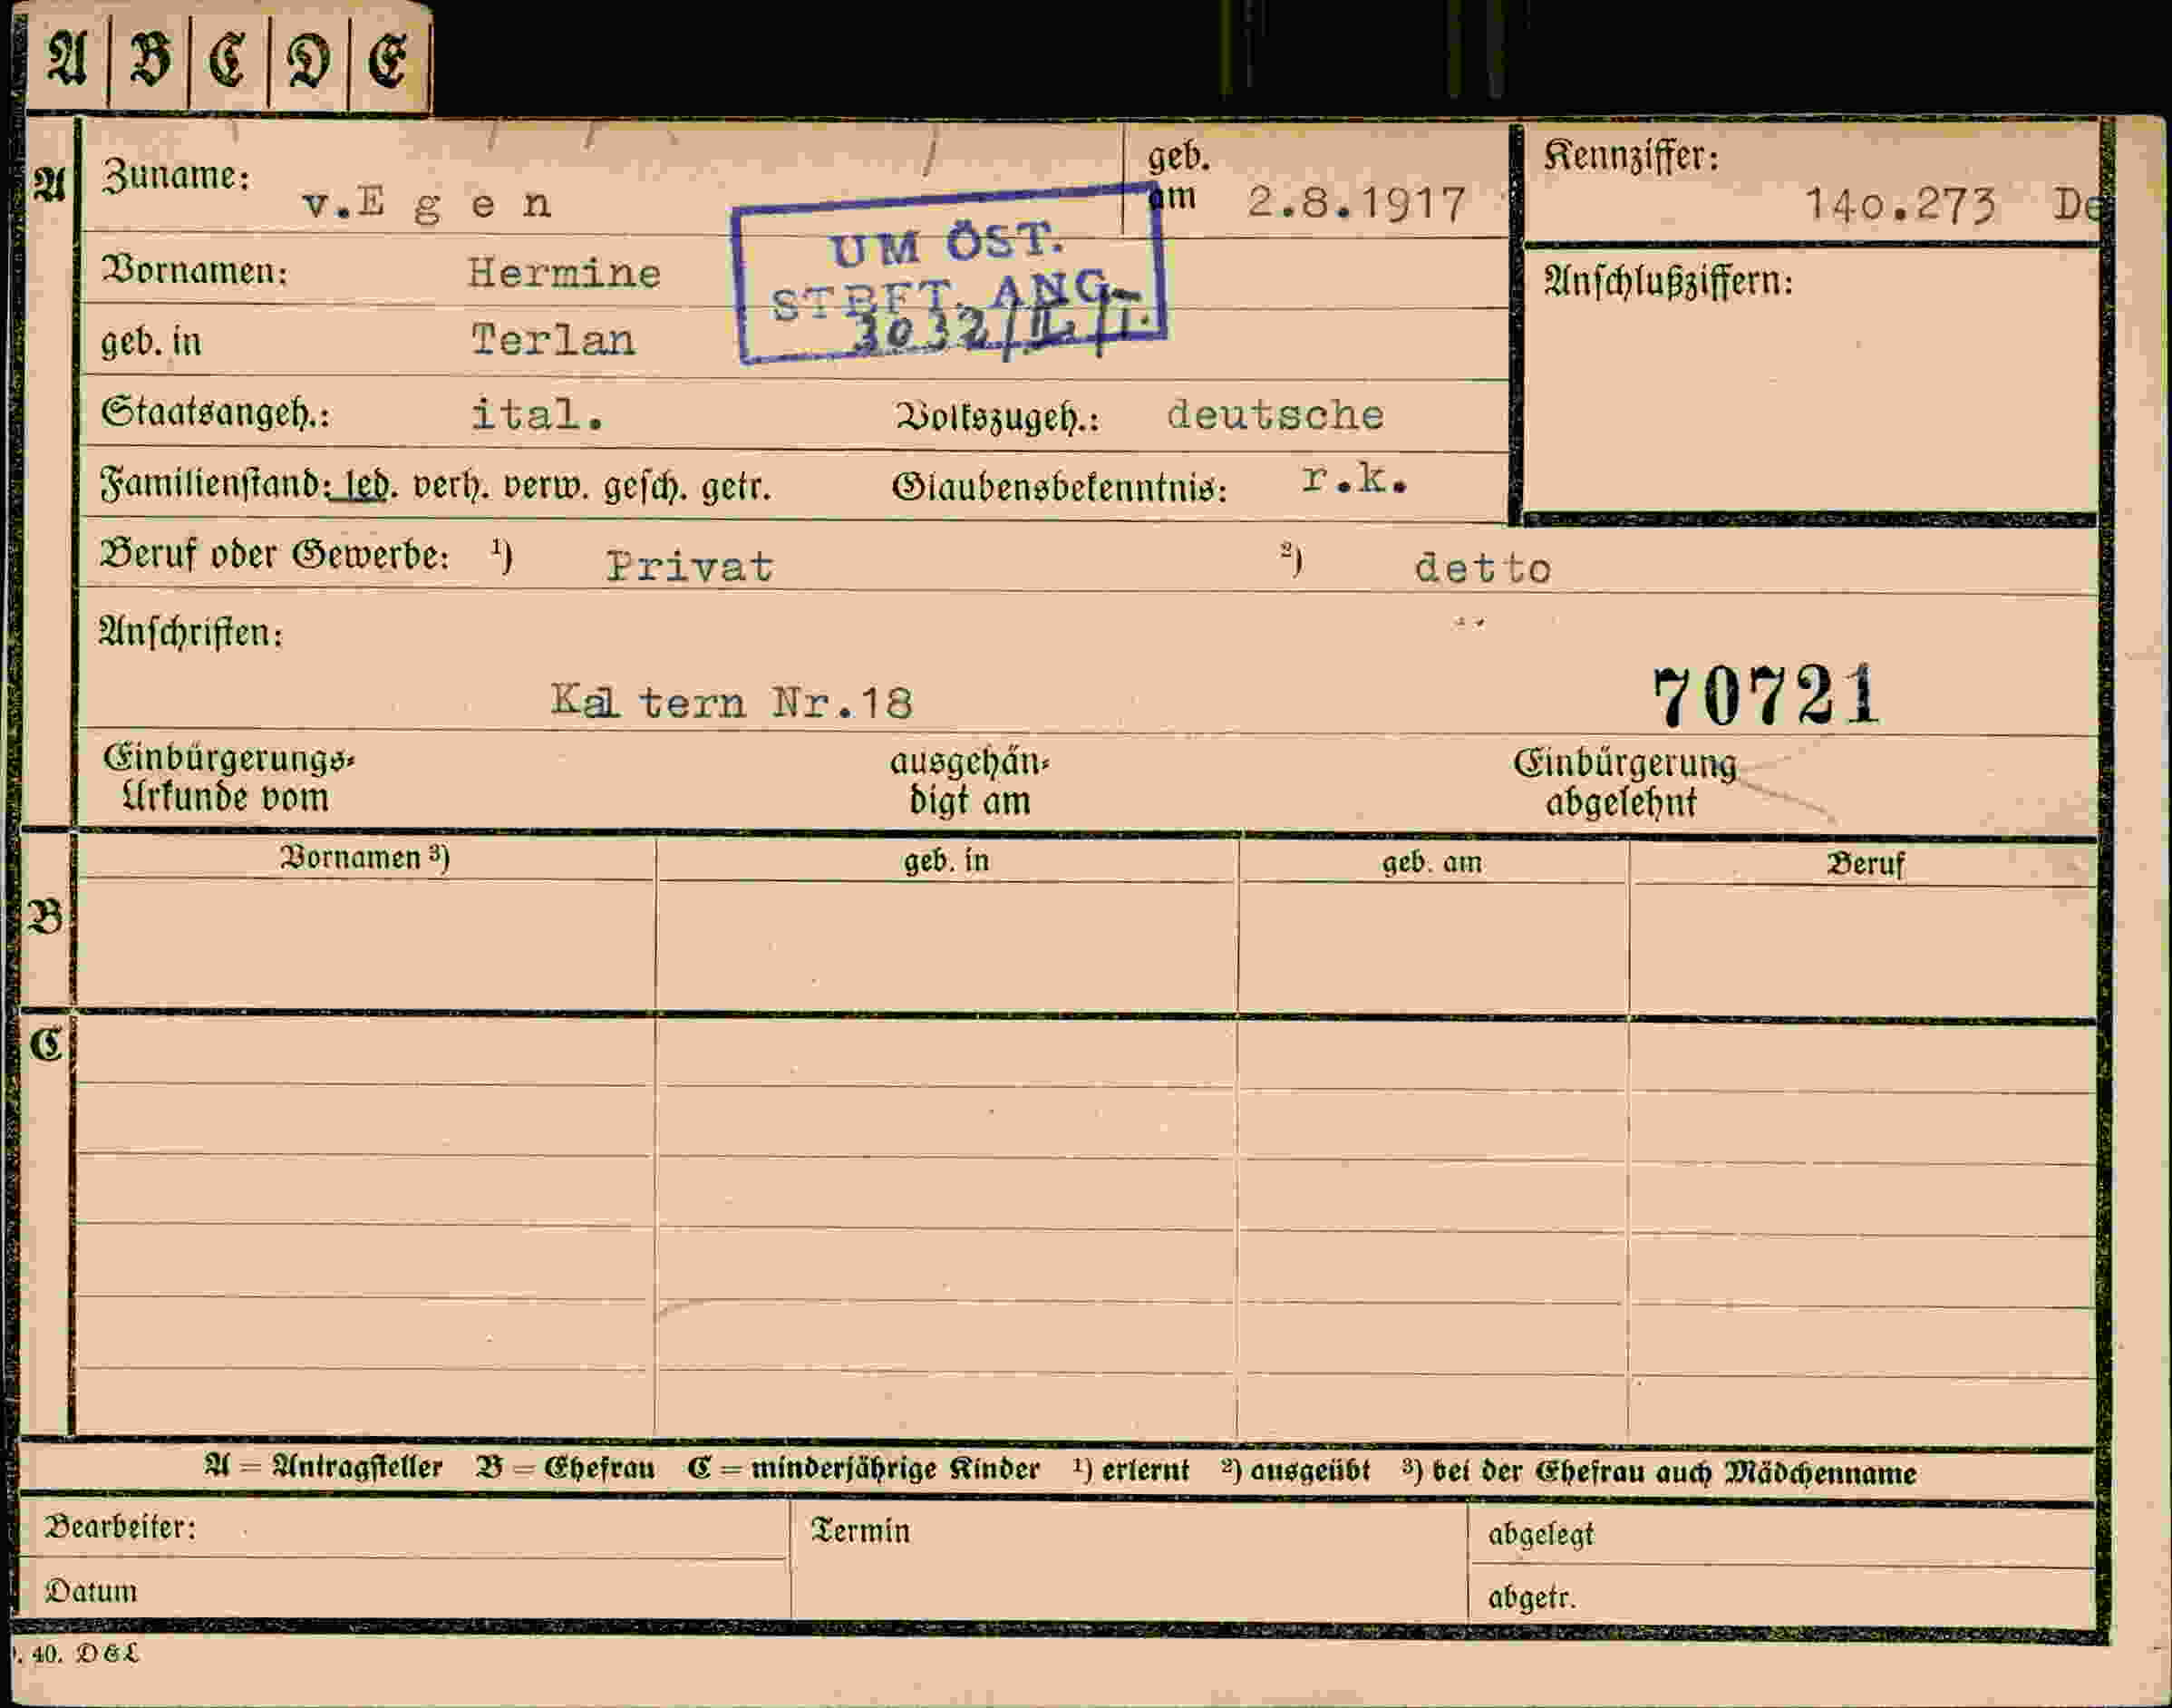 A B C D E
A
Zuname: v.E g e n
geb. am 2.8.1917
Kennziffer: 14o.273 De
UM ÖST.
STBFT. ANG.
Vornamen: Hermine
Anschlußziffern:
geb. in Terlan
Staatsangeh.: ital. Volkszugeh.: deutsche
Familienstand: led. verh. verw. gesch. getr. Glaubensbekenntnis: r.k.
Beruf oder Gewerbe: 1) Privat 2) detto
Anschriften:
Kal tern Nr.18 70721
Einbürgerungs-
Urkunde vom
ausgehän-
digt am
Einbürgerung
abgelehnt
Vornamen 3) geb. in geb. am Beruf
B
C
A = Antragsteller B = Ehefrau C = minderjährige Kinder 1) erlernt 2) ausgeübt 3) bei der Ehefrau auch Mädchenname
Bearbeiter: Termin abgelegt
Datum abgetr.
. 40. D&L